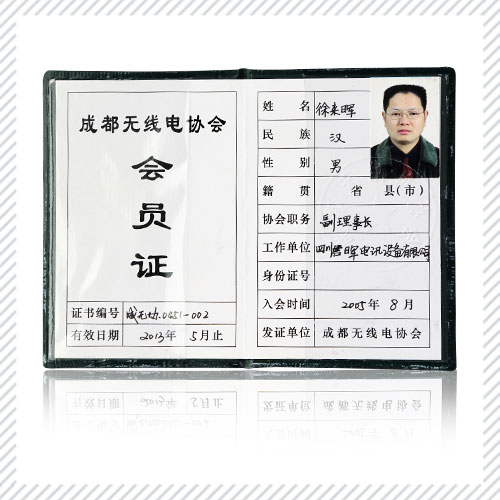 成都无线电协会
会员证
证书编号 成无协.0451-002
有效日期 2013年 5月止
姓名 徐来晖
民族 汉
性别 男
籍贯 省 县(市)
协会职务 副理事长
工作单位 四川 晖电讯设备有限公司
身份证号
入会时间 2005年 8月
发证单位 成都无线电协会